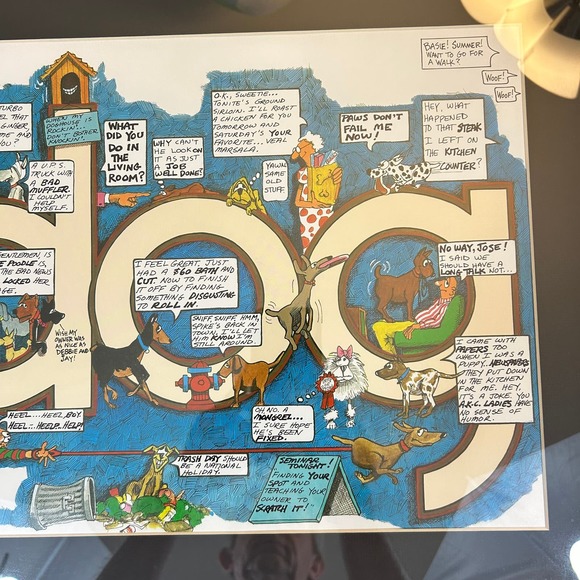 BASIE! SUMMER!
WANT TO GO FOR
A WALK?
WOOF!
WOOF!
TURBO
EL THAT
GINGER
ME AND
YOU?
WHEN MY
DOGHOUSE IS
ROCKIN'...
DON'T BOTHER
KNOCKIN'!
WHAT
DID YOU
DO IN
THE
LIVING
ROOM?
WHY CAN'T
HE LOOK ON
IT AS JUST
A JOB
WELL DONE!
O.K., SWEETIE...
TONITE'S GROUND
SIRLOIN. I'LL ROAST
A CHICKEN FOR YOU
TOMORROW AND
SATURDAY'S YOUR
FAVORITE... VEAL
MARSALA.
YAWN
SAME
OLD
STUFF
PAWS DON'T
FAIL ME
NOW!
HEY, WHAT
HAPPENED
TO THAT STEAK
I LEFT ON
THE KITCHEN
COUNTER?
A U.P.S.
TRUCK WITH
A BAD
MUFFLER.
I COULDN'T
HELP
MYSELF.
GENTLEMEN, IS
E POODLE IS
THE BAD NEWS
LOCKED HER
AGE.
WISH MY
OWNER WAS
AS NICE AS
DEBBIE AND
JAY!
I FEEL GREAT. JUST
HAD A $60 BATH AND
CUT. NOW TO FINISH
IT OFF BY FINDING
SOMETHING DISGUSTING
TO ROLL IN.
SNIFF, SNIFF, HMM,
SPIKE'S BACK IN
TOWN. I'LL LET
HIM KNOW I'M
STILL AROUND.
NO WAY, JOSE!
I SAID WE
SHOULD HAVE A
LONG TALK NOT...
I CAME WITH
PAPERS TOO
WHEN I WAS A
PUPPY... NEWSPAPERS
THEY PUT DOWN
IN THE KITCHEN
FOR ME. HEY,
IT'S A JOKE. YOU
A.K.C. LADIES HAVE
NO SENSE OF
HUMOR.
OH NO. A
MONGREL...
I SURE HOPE
HE'S BEEN
FIXED.
HEEL....HEEL, BOY.
HEEL... HEELP...HELP!
TRASH DAY SHOULD
BE A NATIONAL
HOLIDAY.
SEMINAR
TONIGHT!
FINDING YOUR
SPOT AND
TEACHING YOUR
OWNER TO
SCRATCH IT!